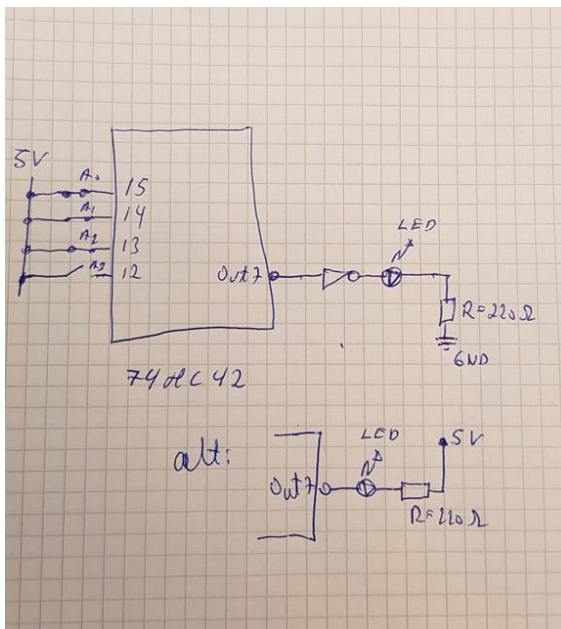 5V
A0
15
A1
14
A2
13
A3
12
Out7
LED
R=220Ω
GND
74HC42
alt:
Out7
LED
5V
R=220Ω